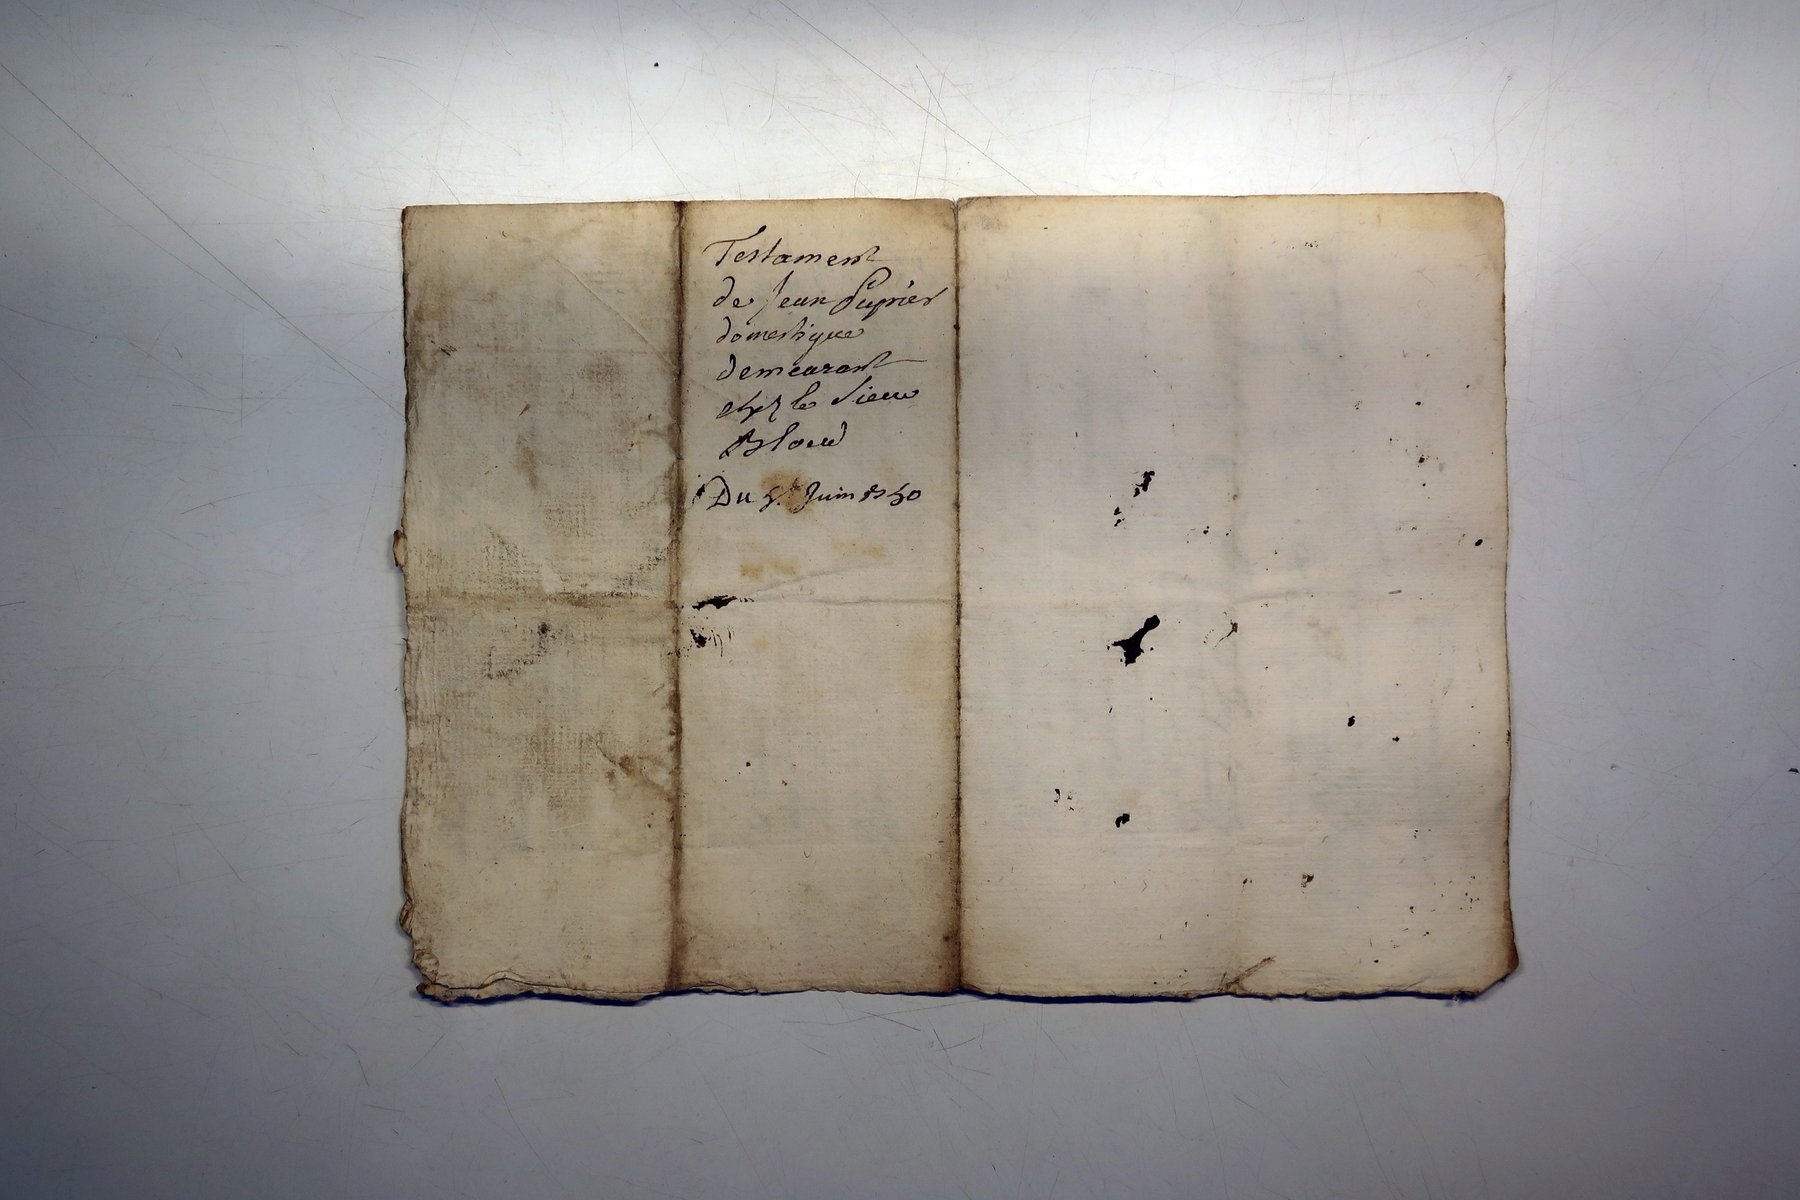 Testament
de Jean Pupier
domestique
demeurant
chez le Sieur
Bloud
Du 5e Juin